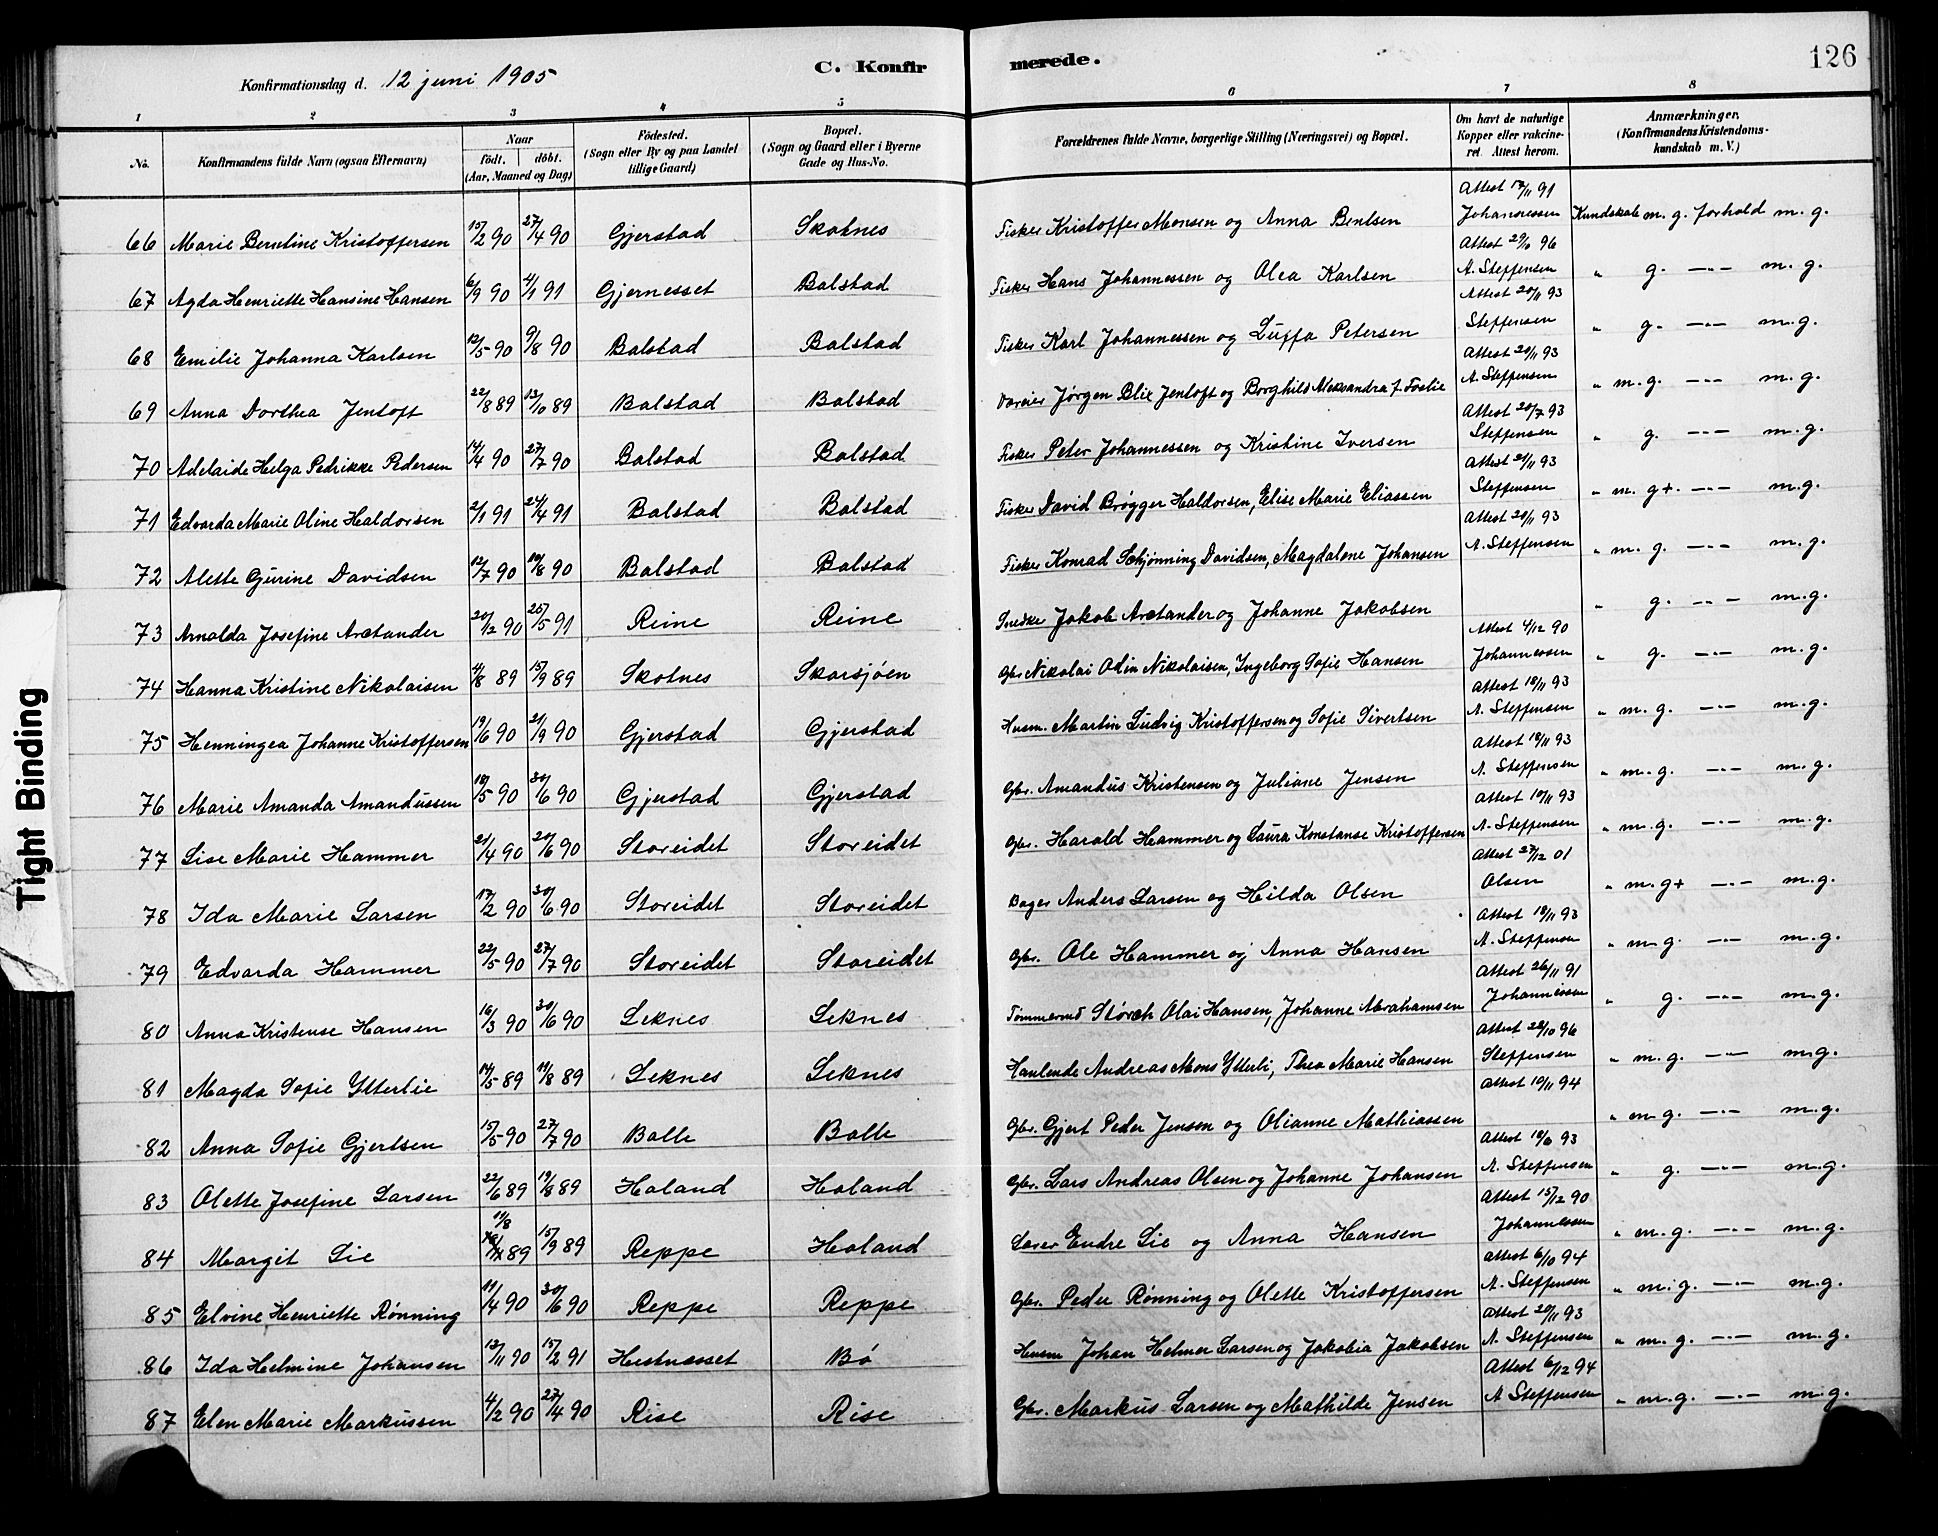 126
Konfirmationsdag d. 12 juni 1905 C. Konfirmerede.
1 2 3 4 5 6 7 8
No. Konfirmandens fulde Navn (ogsaa Efternavn) Naar født. døbt. (Aar, Maaned og Dag) Fødested. (Sogn eller By og paa Landet tillige Gaard) Bopæl. (Sogn og Gaard eller i Byerne Gade og Hus-No. Forældrenes fulde Navne, borgerlige Stilling (Næringsvei) og Bopæl. Om havt de naturlige Kopper eller vakcineret. Attest herom. Anmærkninger. (Konfirmandens Kristendomskundskab m. V.)
66 Marie Berntine Kristoffersen 15/2 90 27/4 90 Gjerstad Skotnes Fisker Kristoffer Monsen og Anna Bentsen Attest 17/11 91 Johannessen Kundskab m. g. forhold m. g.
67 Agda Henriette Hansine Hansen 6/9 90 4/1 91 Gjernesset Balstad Fisker Hans Johannessen og Olea Karlsen Attest 29/10 96 A. Steffensen " g. -"- m. g.
68 Emilie Johanna Karlsen 12/5 90 9/8 90 Balstad Balstad Fisker Karl Johannessen og Luffa Petersen Attest 20/11 93 Steffensen " g. -"- m. g.
69 Anna Dorthea Jentoft 22/8 89 13/10 89 Balstad Balstad Væreier Jørgen Blix Jentoft og Borghild Aleksandra f. Foslie Attest 20/11 93 A. Steffensen " m. g. -"- m. g.
70 Adelaide Helga Pedrikke Pedersen 14/4 90 27/7 90 Balstad Balstad Fisker Peter Johannessen og Kristine Iversen Attest 20/7 93 Steffensen " g. -"- m. g.
71 Edvarda Marie Oline Haldorsen 2/1 91 24/4 91 Balstad Balstad Fisker David Brøgger Haldorsen, Elise Marie Eliassen Attest 21/11 93 Steffensen " m. g+. -"- m. g.
72 Alette Gurine Davidsen 12/7 90 10/8 90 Balstad Balstad Fisker Konrad Schjønning Davidsen, Magdalone Johansen Attest 20/11 93 A. Steffensen " m. g. -"- m. g.
73 Arnolda Josefine Arctander 20/12 90 25/5 91 Reine Reine Snedker Jakob Arctander og Johanne Jakobsen " g. -"- m. g.
74 Hanna Kristine Nikolaisen 4/8 89 15/9 89 Skotnes Skarsjøen Gbr Nikolai Odin Nikolaisen, Ingeborg Sofie Hansen Attest 4/12 90 Johannessen " g. -"- m. g.
75 Henningea Johanne Kristoffersen 19/6 90 21/9 90 Gjerstad Gjerstad Husm. Martin Ludvig Kristoffersen og Sofie Sivertsen Attest 18/11 93 A. Steffensen " m. g. -"- m. g.
76 Marie Amanda Amandussen 18/5 90 30/6 90 Gjerstad Gjerstad Gbr. Amandus Kristensen og Juliane Jensen Attest 18/11 93 A. Steffensen " m. g. -"- m. g.
77 Lise Marie Hammer 21/4 90 20/6 90 Storeidet Storeidet Gbr. Harald Hammer og Laura Konstanse Kristoffersen Attest 18/11 93 A. Steffensen " m. g. -"- m. g.
78 Ida Marie Larsen 17/2 90 30/6 90 Storeidet Storeidet Bager Anders Larsen og Hilda Olsen Attest 27/12 01 Olsen " m. g+ -"- m. g.
79 Edvarda Hammer 22/5 90 27/7 90 Storeidet Storeidet Gbr. Ole Hammer og Anna Hansen Attest 18/11 93 A. Steffensen " m. g. -"- m. g.
80 Anna Kristense Hansen 16/3 90 30/6 90 Leknes Leknes Tømmermd Størch Olai Hansen, Johanne Abrahamsen Attest 26/11 91 Johannessen " g. -"- m. g.
81 Magda Sofie Ytterlie 14/5 89 11/8 89 Leknes Leknes Handlende Andreas Mons Ytterli, Thea Marie Hansen Attest 28/10 96 Steffensen " m. g. -"- m. g.
82 Anna Sofie Gjertsen 15/5 90 27/7 90 Bolle Bolle Gbr. Gjert Peder Jensen og Olianne Mathiassen Attest 10/11 94 " m. g. -"- m. g.
83 Olette Josefine Larsen 22/6 89 19/8 89 Holand Holand Gbr. Lars Andreas Olsen og Johanne Johansen Attest 18/6 93 A. Steffensen " g. -"- m. g.
84 Margit Lie 11/8 89 15/9 89 Reppe Holand Lærer Endre Lie og Anna Hansen Attest 15/12 90 Johannessen " m. g. -"- m. g.
85 Elvine Henriette Rønning 11/4 90 30/6 90 Reppe Reppe Gbr. Peder Rønning og Olette Kristoffersen Attest 6/10 94 A. Steffensen " m. g. -"- m. g.
86 Ida Helmine Johansen 13/11 90 15/2 91 Hestnesset Bø Husm Johan Helmer Larsen og Jakobia Jakobsen Attest 20/11 93 A. Steffensen " m. g. -"- m. g.
87 Elen Marie Markussen 4/2 90 27/4 90 Rise Rise Gbr. Markus Larsen og Mathilde Jensen Attest 6/12 94 A Steffensen " m. g. -"- m. g.
Tight Binding